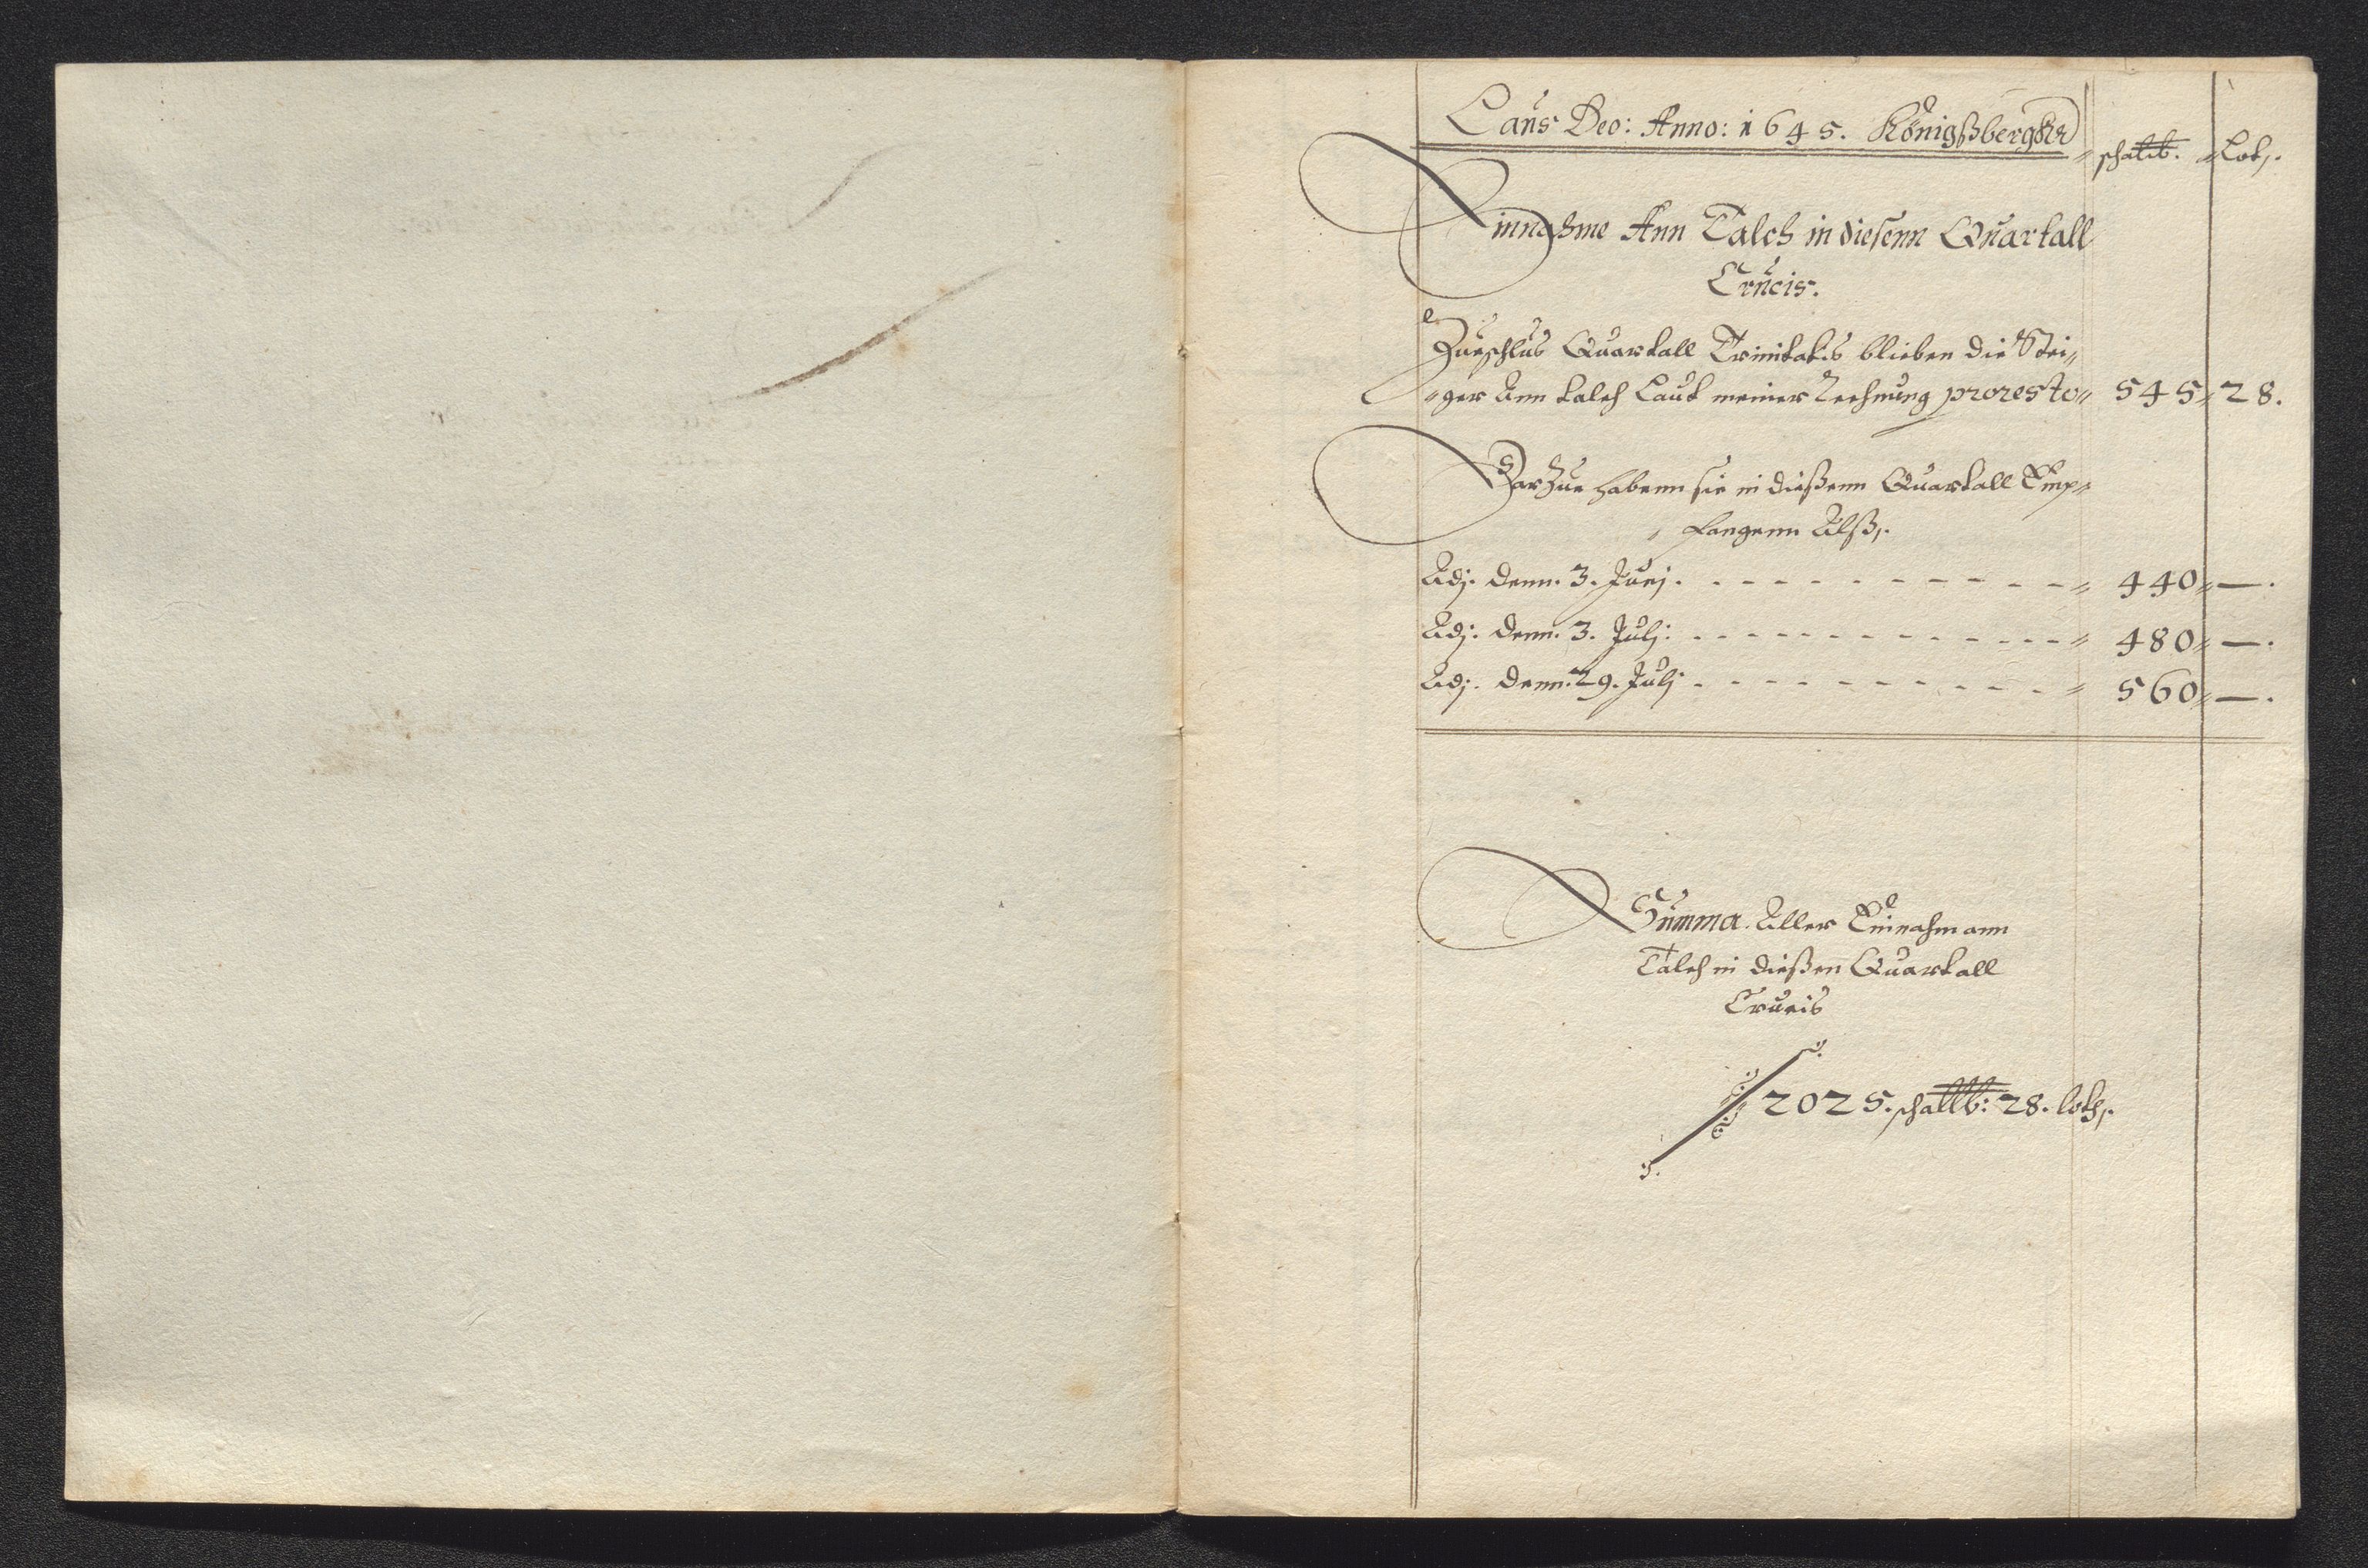 Laus Deo: Anno: 1645. Königßbergk
schal℔. Lot,.
Einnahme Ann Talch in diesenn Quartall
Crucis.
Zueschlus Quartall Trinitatis blieben die Stei„
„ger Ann talch Laut meiner Rechnung pro resto„ 545„ 28.
Darzue habenn sie in dießenn Quartall Emp„
„fangenn Alß,.
Adj. denn. 3. Junj. - - - - - - - - - - - „ 440„ —.
Adj. denn. 3. Julj: - - - - - - - - - - - „ 480„ —.
Adj. denn. 29. Julj - - - - - - - - - - - „ 560„ —.
Summa. Aller Einnahm ann
Talch in dießen Quartall
Crucis
2025. schal℔: 28. loth,.